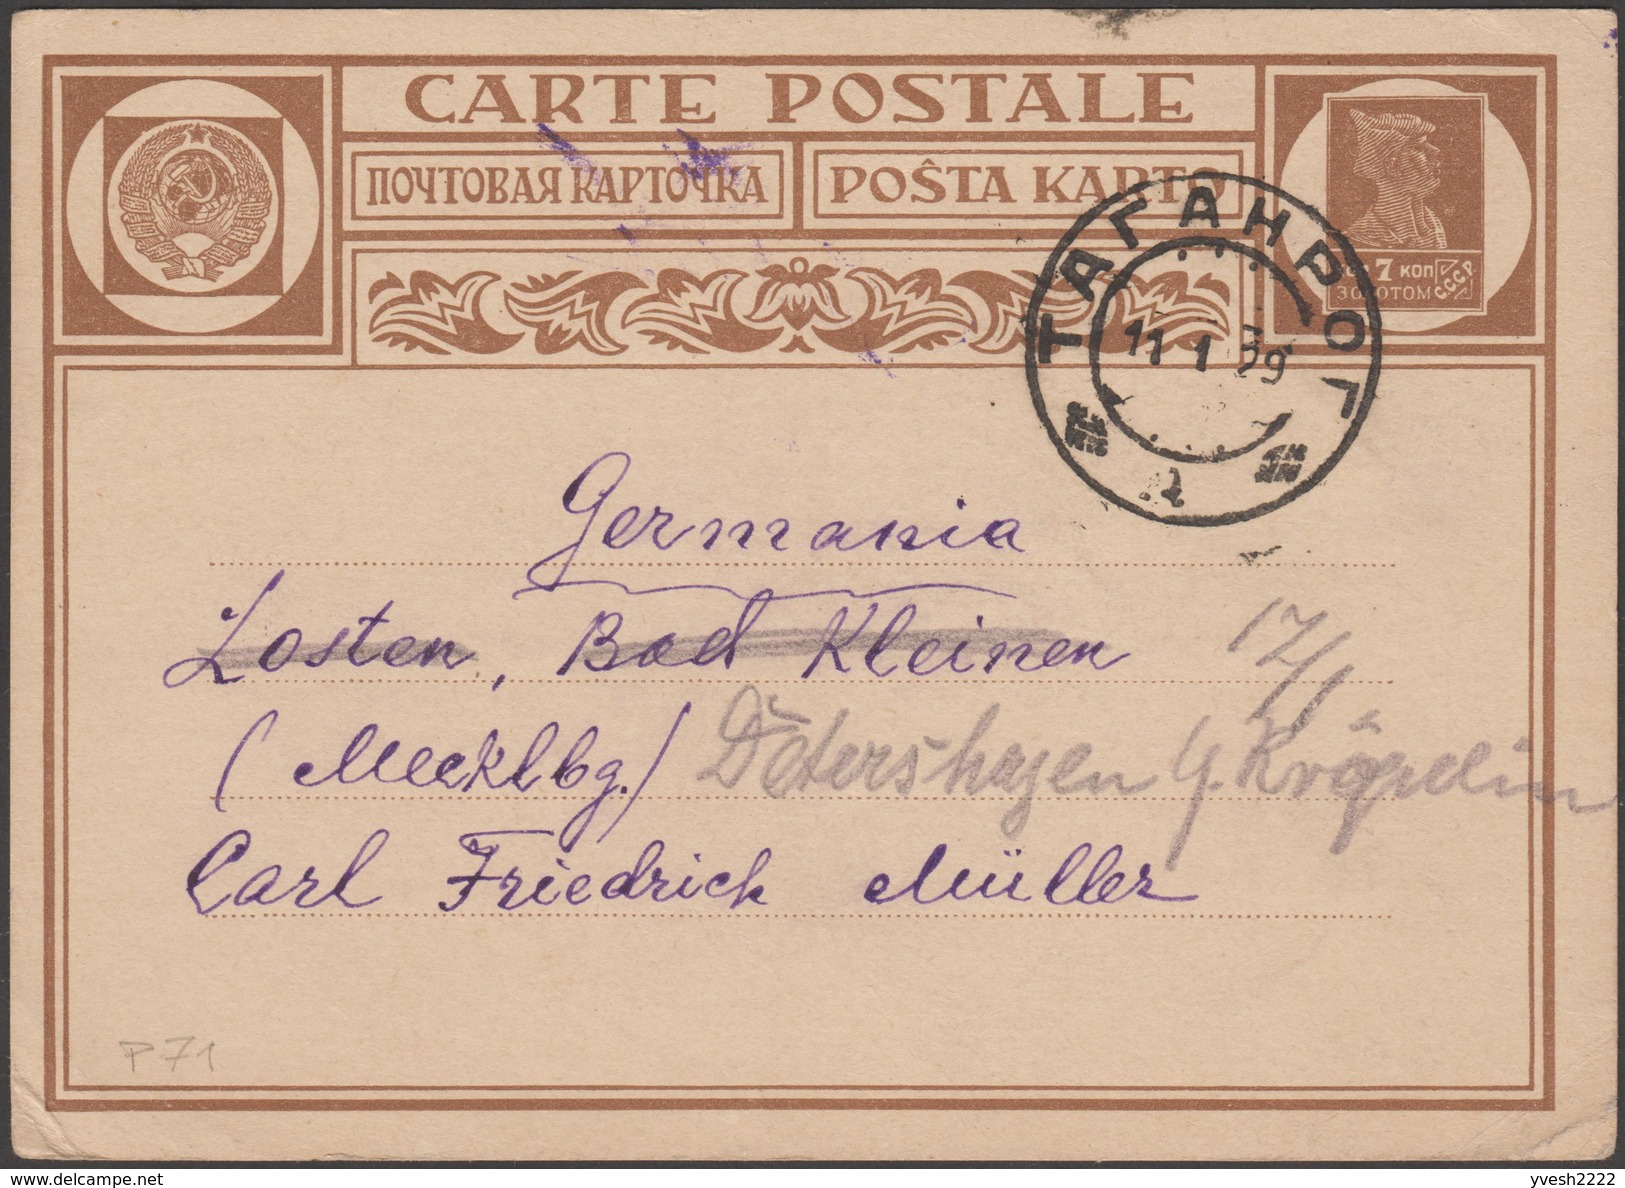 CARTE POSTALE
ПОЧТОВАЯ КАРТОЧКА
POŜTA KARTO
7 КОП
ЗОЛОТОМ
СССР
ТАГАНРОГ
11 1 39
Germania
Losten, Bad Kleinen
17/1
(Mecklbg.)
Detershagen Kröpelin
Carl Friedrich Müller
P71
yvesh2222